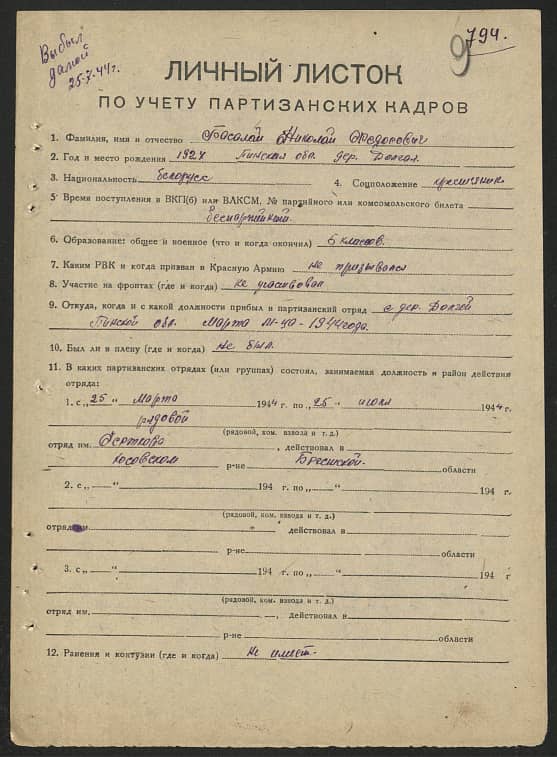 Выбыл
домой
25-7-44г.
794.
9
ЛИЧНЫЙ ЛИСТОК
ПО УЧЕТУ ПАРТИЗАНСКИХ КАДРОВ
1. Фамилия, имя и отчество Басалай Николай Федорович
2. Год и место рождения 1927 Пинская обл. дер. Долгая.
3. Национальность белорусс 4. Соцположение крестьянин
5 Время поступления в ВКП(б) или ВЛКСМ, № партийного или комсомольского билета
беспартийный.
6. Образование: общее и военное (что и когда окончил) 5 классов.
7. Каким РВК и когда призван в Красную Армию не призывался
8. Участие на фронтах (где и когда) не участвовал
9. Откуда, когда и с какой должности прибыл в партизанский отряд с дер. Долгой
Пинской обл. Марта м-ца 1944 года.
10. Был ли в плену (где и когда) не был.
11. В каких партизанских отрядах (или группах) состоял, занимаемая должность и район действия
отряда:
1. с „25“ Марта 1944 г по „25“ июля 1944 г.
рядовой
(рядовой, ком. взвода и т. д.)
отряд им. , действовал в
Косовском р-не Брестской области
2. с „ “ 194 г. по „ “ 194 г.
(рядовой, ком. взвода и т. д.)
отряд им , действовал в
р-не области
3. с „ “ 194 г. по „ “ 194 г
(рядовой, ком. взвода и т. д.)
отряд им. , действовал в
р-не области
12. Ранения и контузии (где и когда) Не имеет.